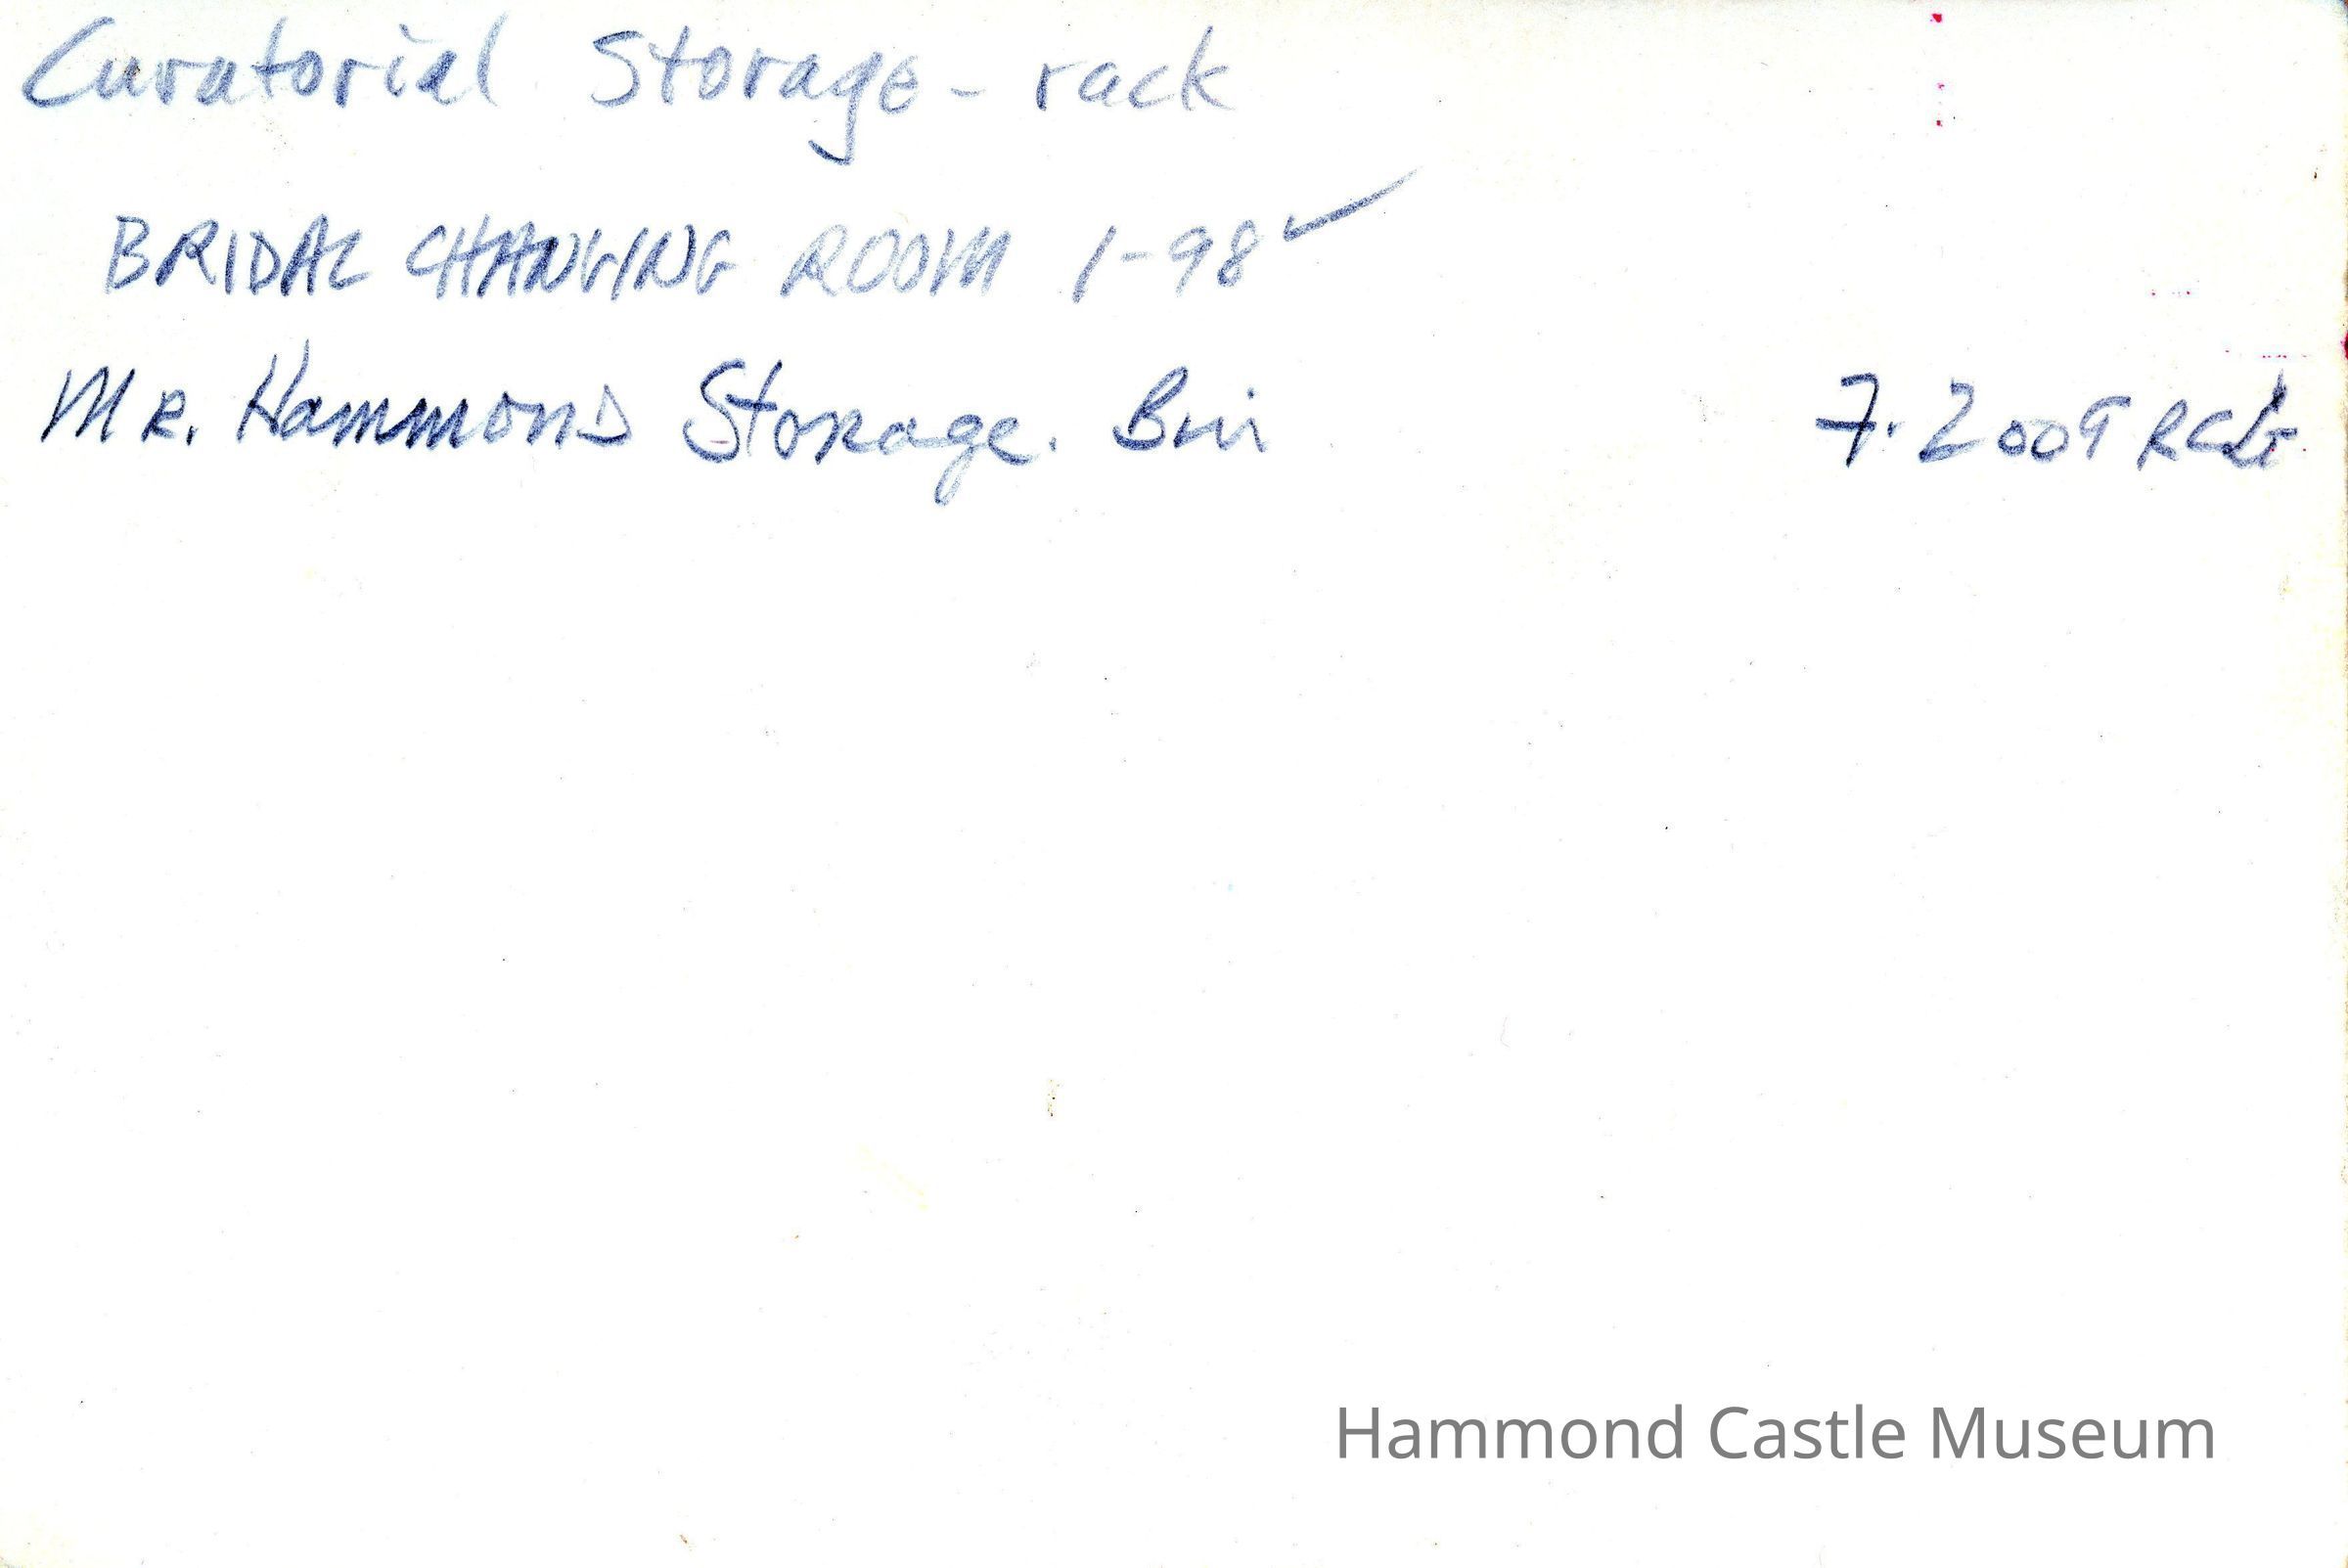 Curatorial Storage - rack
BRIDAL CHANGING ROOM 1-98 ✓
MR. HammonD Storage. Bin 7. 2009
Hammond Castle Museum